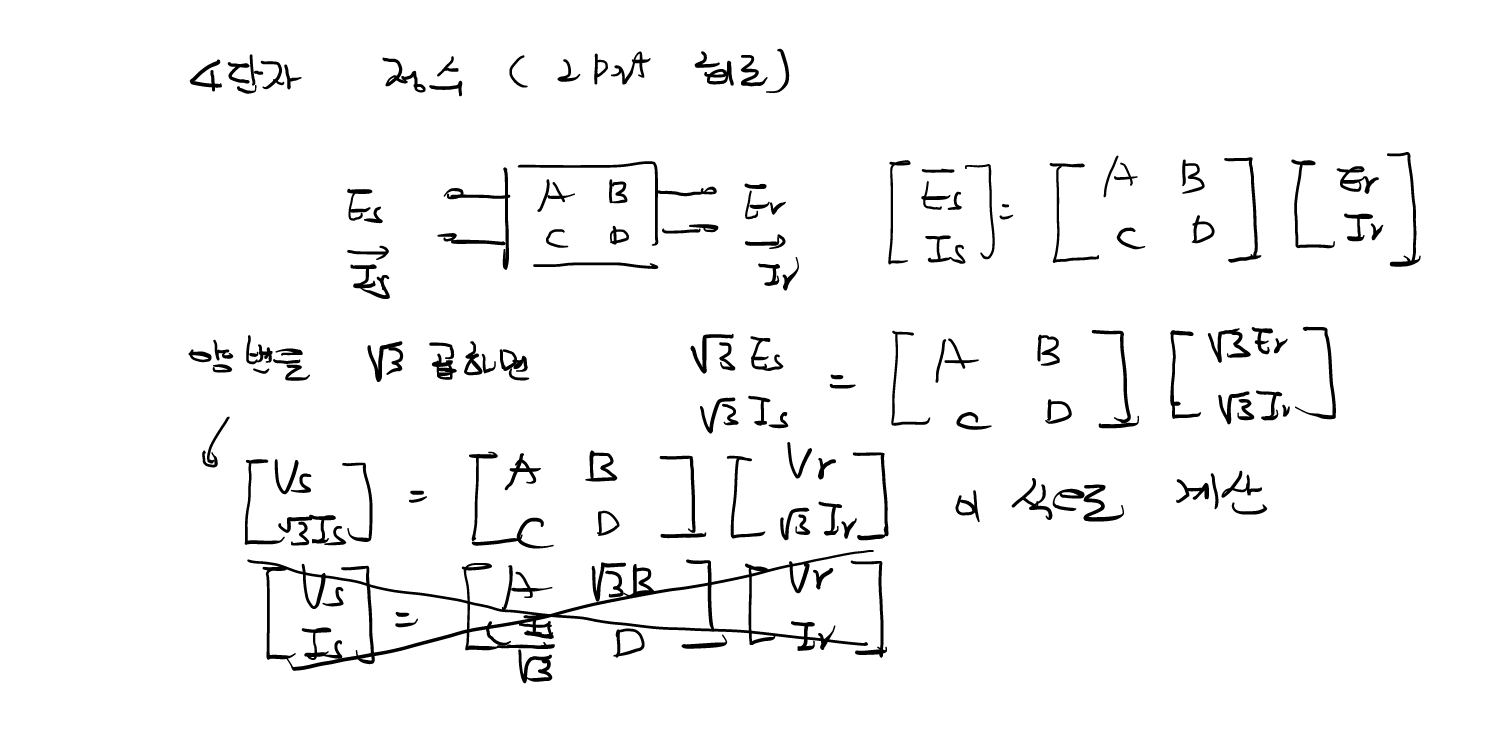 4단자 정수 ( 2 port 회로)
Es A B Er [Es Is] = [A B C D] [Er Ir]
Is C D Ir
양변을 √3 곱하면 √3 Es √3 Is = [A B C D] [√3 Er √3 Ir]
[Vs √3 Is] = [A B C D] [Vr √3 Ir] 이 식으로 계산
[Vs Is] = [A √3B C/√3 D] [Vr Ir]